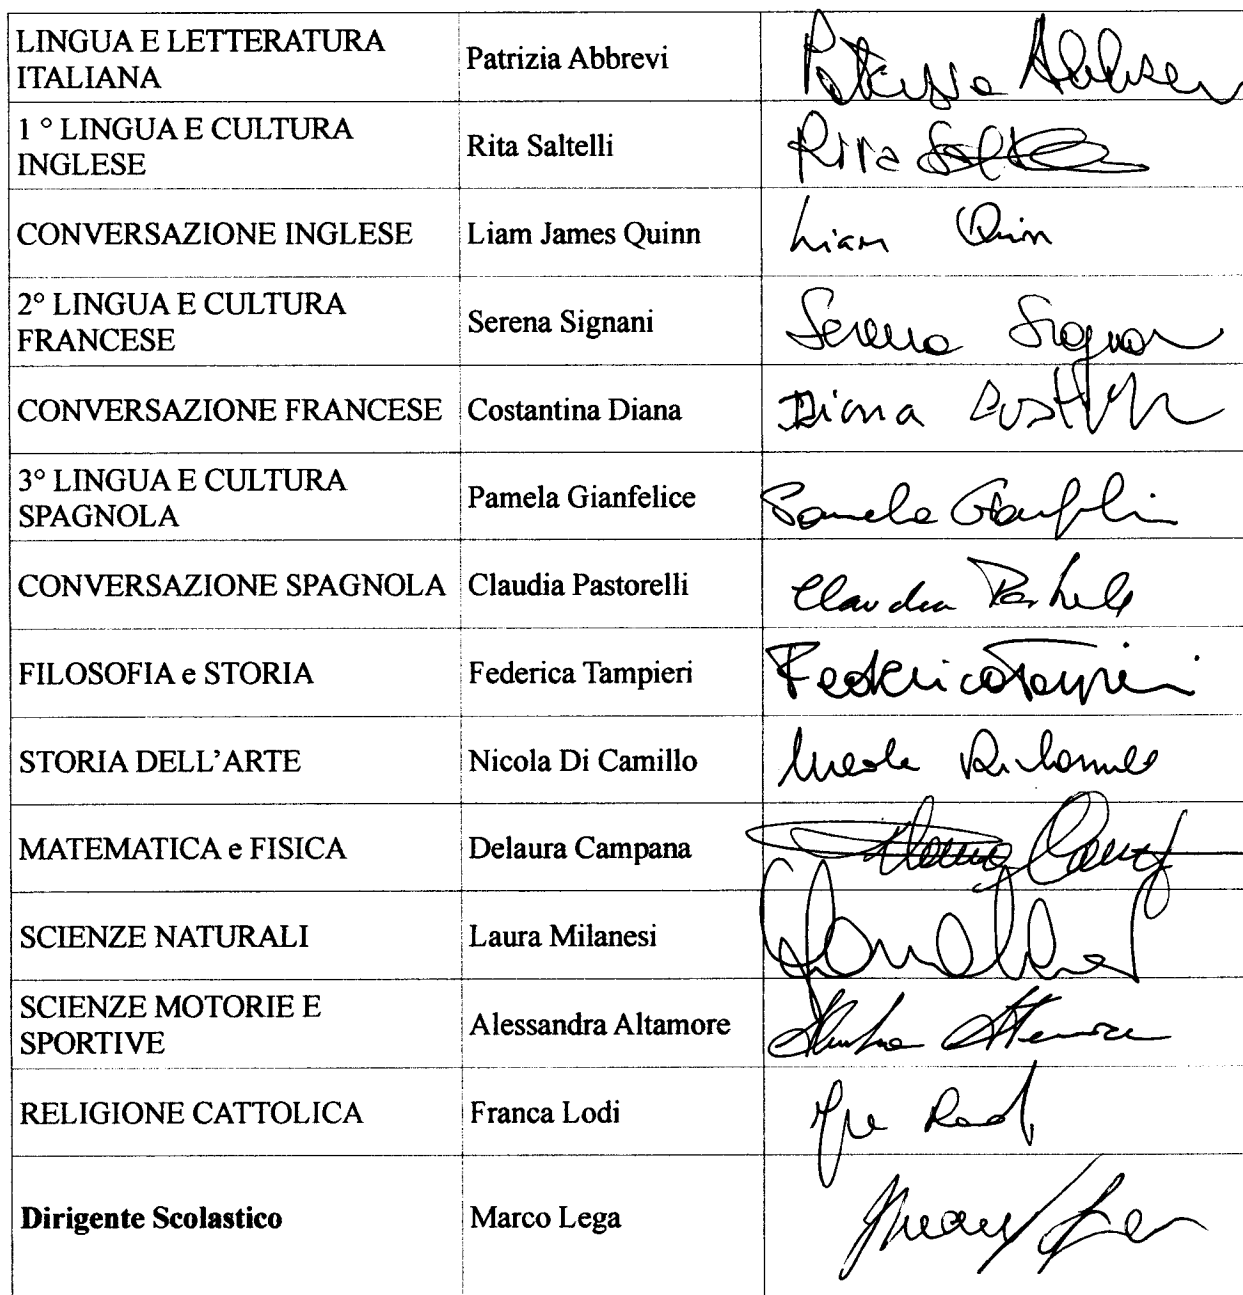 LINGUA E LETTERATURA
ITALIANA
Patrizia Abbrevi
1 ° LINGUA E CULTURA
INGLESE
Rita Saltelli
Rita
CONVERSAZIONE INGLESE
Liam James Quinn
Liam Quinn
2° LINGUA E CULTURA
FRANCESE
Serena Signani
Serena
CONVERSAZIONE FRANCESE
Costantina Diana
Diana
3° LINGUA E CULTURA
SPAGNOLA
Pamela Gianfelice
Pamela
CONVERSAZIONE SPAGNOLA
Claudia Pastorelli
Claudia
FILOSOFIA e STORIA
Federica Tampieri
Federica
STORIA DELL'ARTE
Nicola Di Camillo
Nicola Di Camillo
MATEMATICA e FISICA
Delaura Campana
SCIENZE NATURALI
Laura Milanesi
SCIENZE MOTORIE E
SPORTIVE
Alessandra Altamore
RELIGIONE CATTOLICA
Franca Lodi
Dirigente Scolastico
Marco Lega